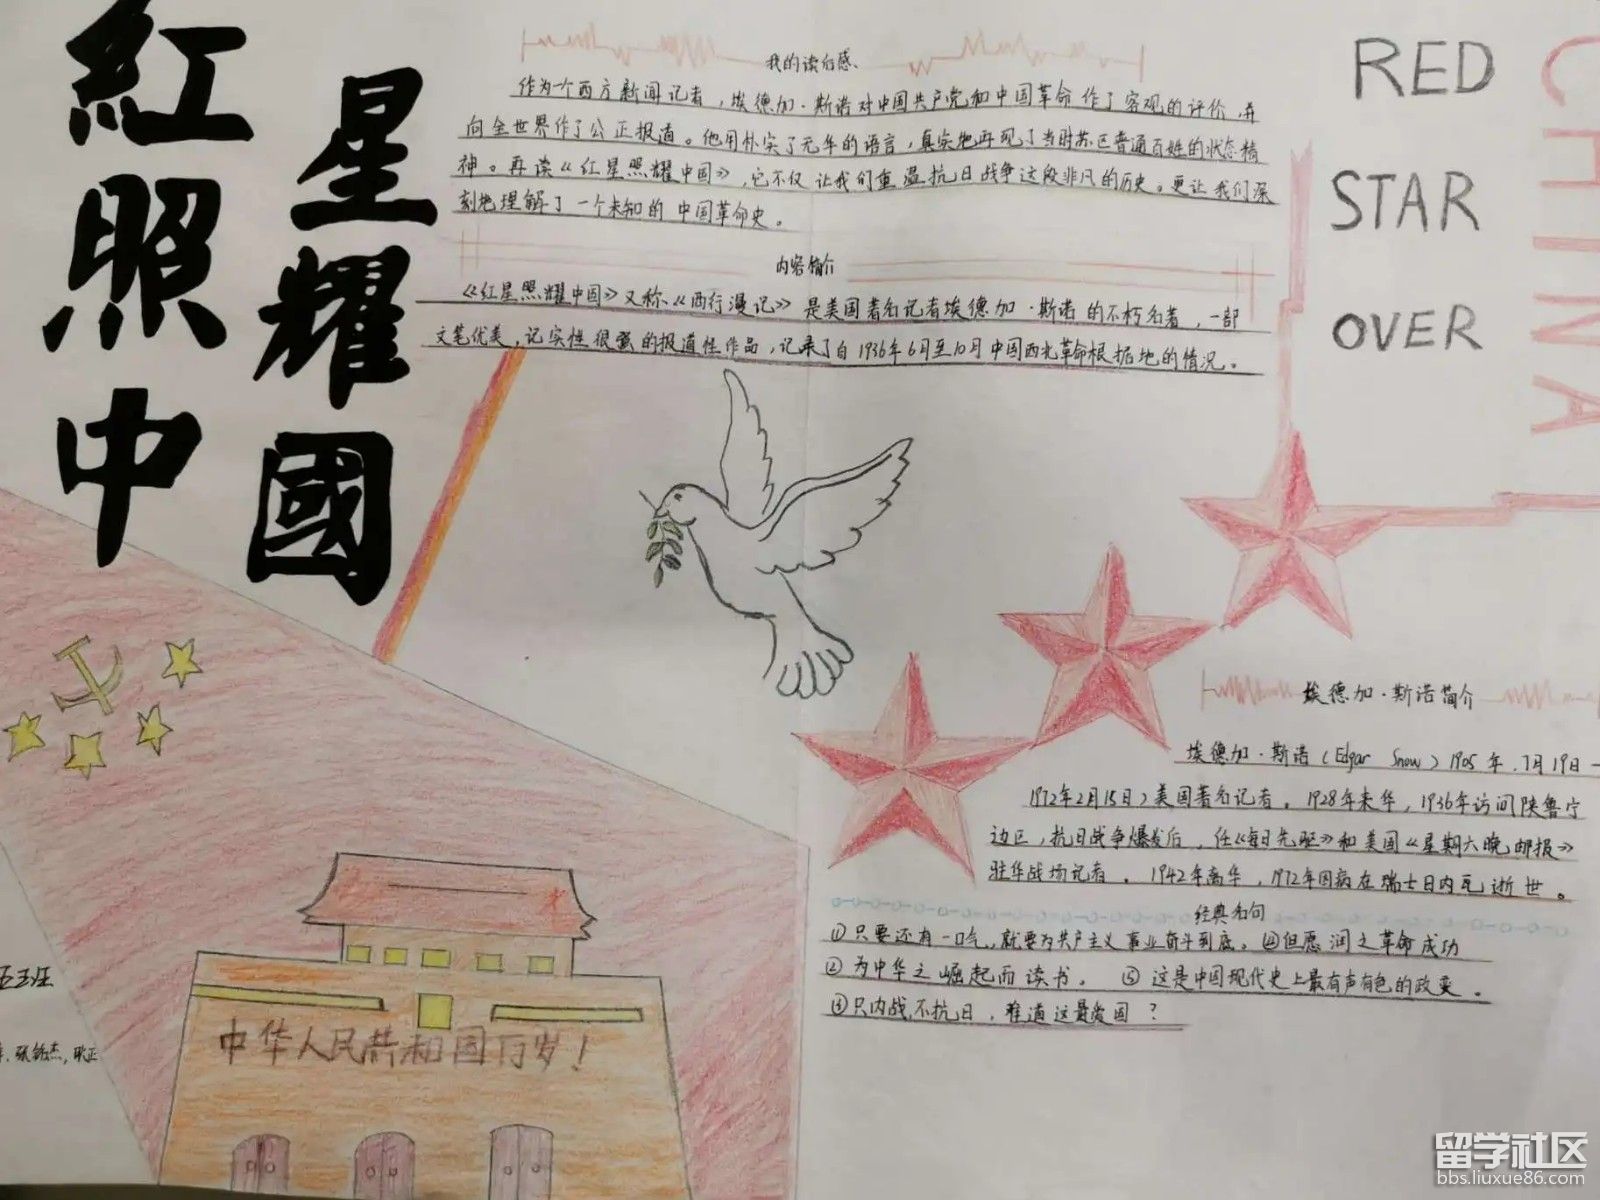 紅星照耀中國
RED
STAR
OVER
CHINA
我的读后感
作为一个西方新闻记者，埃德加·斯诺对中国共产党和中国革命作了客观的评价，并
向全世界作了公正报道。他用朴实了无华的语言，真实地再现了当时苏区普通百姓的状态精
神。再读《红星照耀中国》，它不仅让我们重温抗日战争这段非凡的历史。更让我们深
刻地理解了一个未知的中国革命史。
内容简介
《红星照耀中国》又称《西行漫记》是美国著名记者埃德加·斯诺的不朽名著，一部
文笔优美，记实性很强的报道性作品，记录了自1936年6月至10月中国西北革命根据地的情况。
埃德加·斯诺简介
埃德加·斯诺（Edgar Snow）1905年.7月19日-
1972年2月15日）美国著名记者。1928年来华，1936年访问陕鲁宁
边区，抗日战争爆发后，任《每日先驱》和美国《星期六晚邮报》
驻华战场记者。1942年离华，1972年因病在瑞士日内瓦逝世。
经典名句
①只要还有一口气，就要为共产主义事业奋斗到底。④但愿润之革命成功
②为中华之崛起而读书。⑤这是中国现代史上最有声有色的政变。
③只内战，不抗日，难道这最爱国？
中华人民共和国万岁！
留学社区
bbs.liuxue86.com